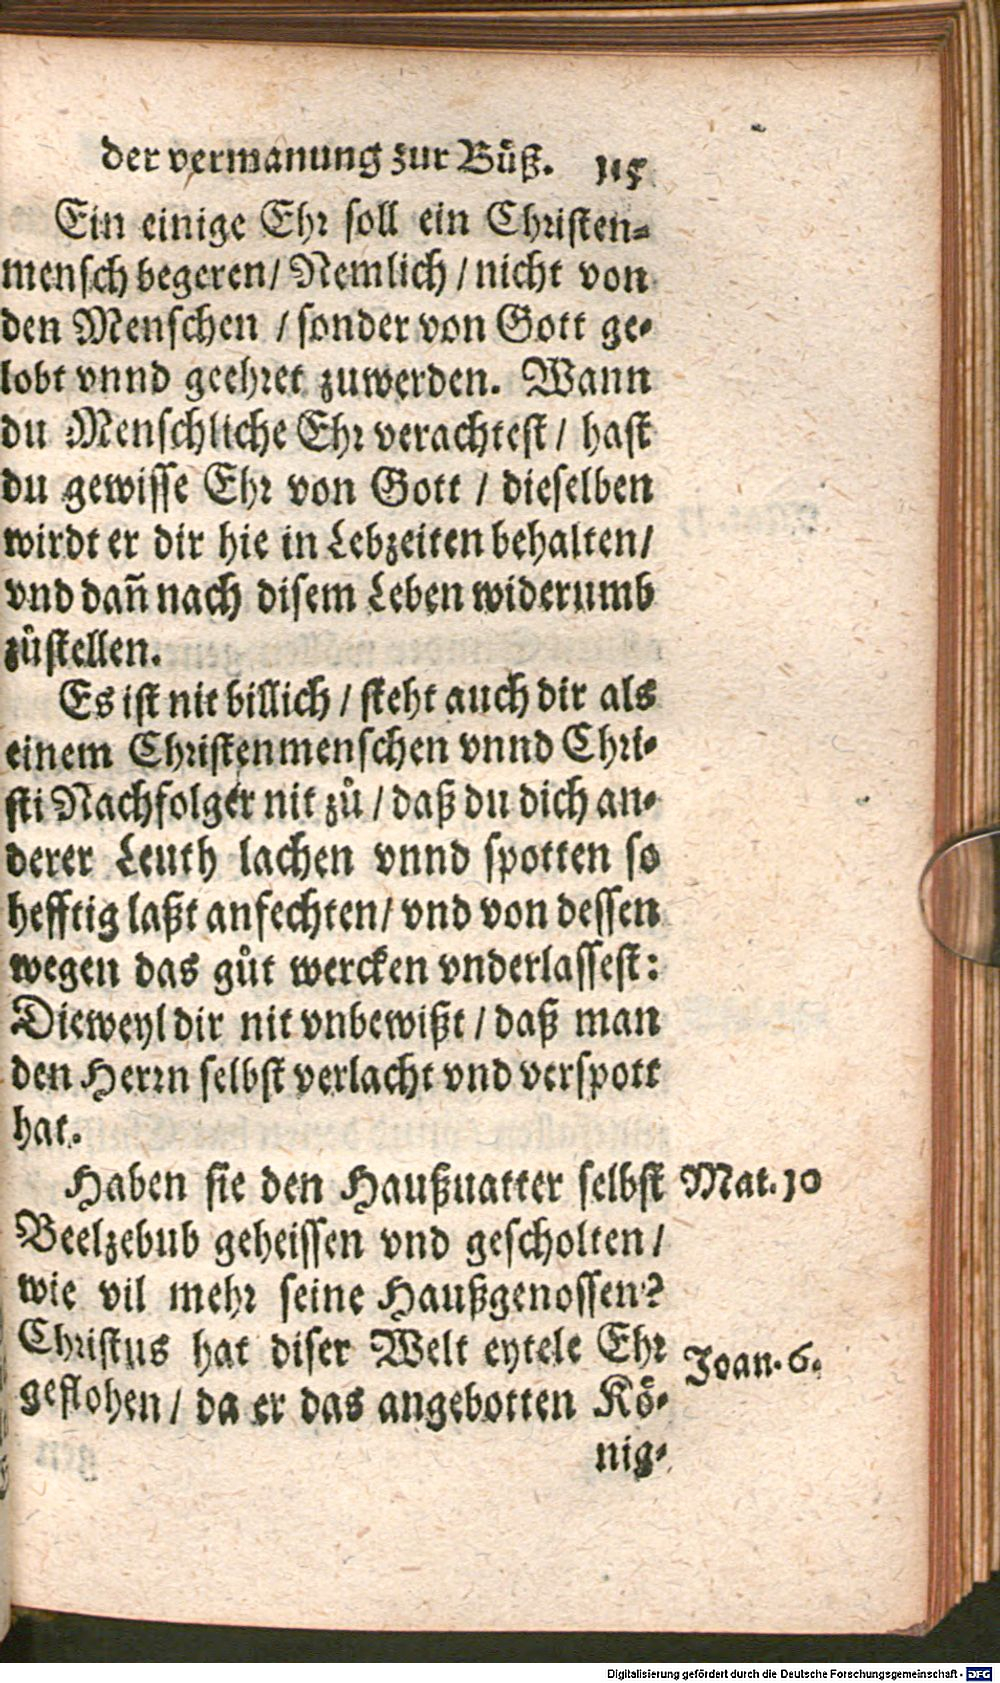 der vermanung zur Bůß. 115
Ein einige Ehr soll ein Christen-
mensch begeren/ Nemlich / nicht von
den Menschen / sonder von Gott ge-
lobt vnnd geehret zuwerden. Wann
du Menschliche Ehr verachtest / hast
du gewisse Ehr von Gott / dieselben
wirdt er dir hie in Lebzeiten behalten/
vnd dañ nach disem Leben widerumb
zůstellen.
Es ist nit billich / steht auch dir als
einem Christenmenschen vnnd Chri-
sti Nachfolger nit zů / daß du dich an-
derer Leuth lachen vnnd spotten so
hefftig laßt anfechten/ vnd von dessen
wegen das gůt wercken vnderlassest:
Dieweyl dir nit vnbewißt / daß man
den Herrn selbst verlacht vnd verspott
hat.
Haben sie den Haußuatter selbst Mat. 10
Beelzebub geheissen vnd gescholten /
wie vil mehr seine Haußgenossen?
Christus hat diser Welt eytele Ehr Joan. 6.
geflohen / da er das angebotten Kö-
nig-
Digitalisierung gefördert durch die Deutsche Forschungsgemeinschaft - DFG